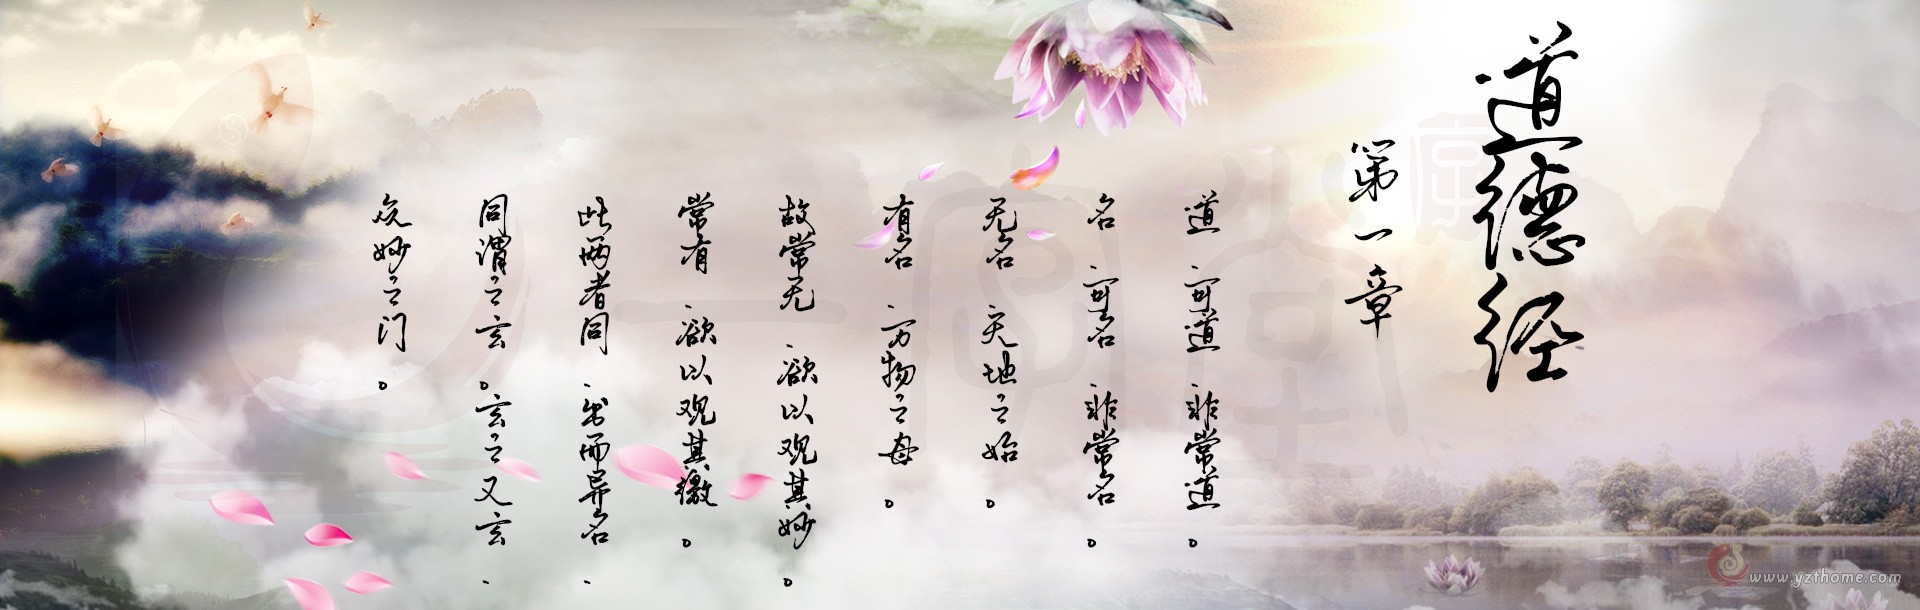 道德经
第一章
道 可道 非常道。
名 可名 非常名。
无名 天地之始。
有名、万物之母。
故常无、欲以观其妙。
常有、欲以观其徼。
此两者同、出而异名、
同谓之玄。玄之又玄、
众妙之门。
www.yzthome.com